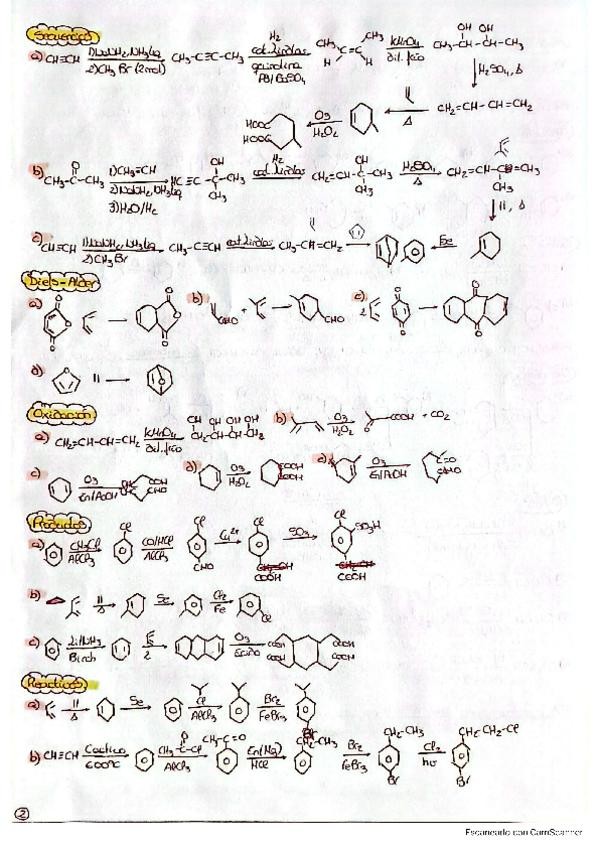 Secuencias
a) CH≡CH 1) NaNH2, NH3 liq 2) CH3Br (2 mol) CH3-C≡C-CH3 H2 cat. Lindlar quinolina Pd/BaSO4 CH3 C=C CH3 H H KMnO4 dil. frío OH OH CH3-CH-CH-CH3
H2SO4, Δ
HOOC HOOC O3 H2O2 Δ CH2=CH-CH=CH2
b) CH3-C-CH3 O 1) CH3≡CH 2) NaNH2, NH3 liq 3) H2O/H2 HC≡C-C-CH3 OH CH3 H2 cat. Lindlar CH2=CH-C-CH3 OH CH3 H2SO4 Δ CH2=CH-C=CH2 CH3
Δ
c) CH≡CH 1) NaNH2, NH3 liq 2) CH3Br CH3-C≡CH cat. Lindlar CH3-CH=CH2 Se
Diels-Alder
a) O O O b) CHO + CHO c) 2 O O O O
d) O O
Oxidación
a) CH2=CH-CH=CH2 KMnO4 dil. frío OH OH OH OH CH2-CH-CH-CH2 b) O3 H2O2 COOH + CO2
c) O3 Zn/AcOH CHO CHO d) O3 H2O2 COOH COOH e) O3 Zn/AcOH C=O CHO
Productos
a) CH3Cl AlCl3 Cl CO/HCl AlCl3 Cl CHO Cl COOH SO3 Cl SO3H COOH
b) Δ Se Cl2 Fe Cl
c) Birch 2 O3 COOH COOH COOH COOH
Reactivos
a) Δ Se Cl AlCl3 Br2 FeBr3 Br
b) CH≡CH 600ºC CH3-C-Cl O AlCl3 CH3-C=O Zn(Hg) HCl CH2-CH3 Br2 FeBr3 CH2-CH3 Br Cl2 hν CH2-CH2-Cl Br
2
Escaneado con CamScanner